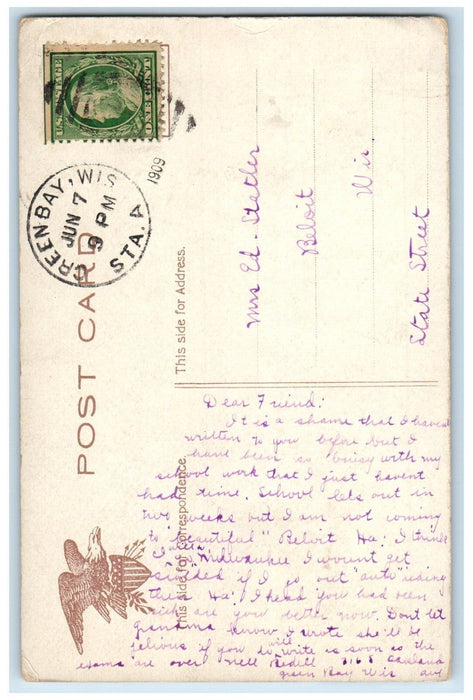 U.S. POSTAGE
ONE CENT
GREEN BAY, WIS
STA. A
JUN 7
9 PM
1909
POST CARD
This side for Address.
Mrs Ed. Statler
Beloit
Wis
State Street
This side for correspondence.
Dear Friend:
It is a shame that I havent
written to you before but I
have been so busy with my
school work that I just havent
had time. School lets out in
two weeks but I am not coming
to "beautiful" Beloit Ha! I think
I Milwaukee I wount get
if I go out "auto" riding
there Ha! I head you had been
sick are you better now. Dont let
grandma know I wrote she'll be
jelious if you do will write as soon as the
exams are over Nell Bedell 1168
green Bay Wis